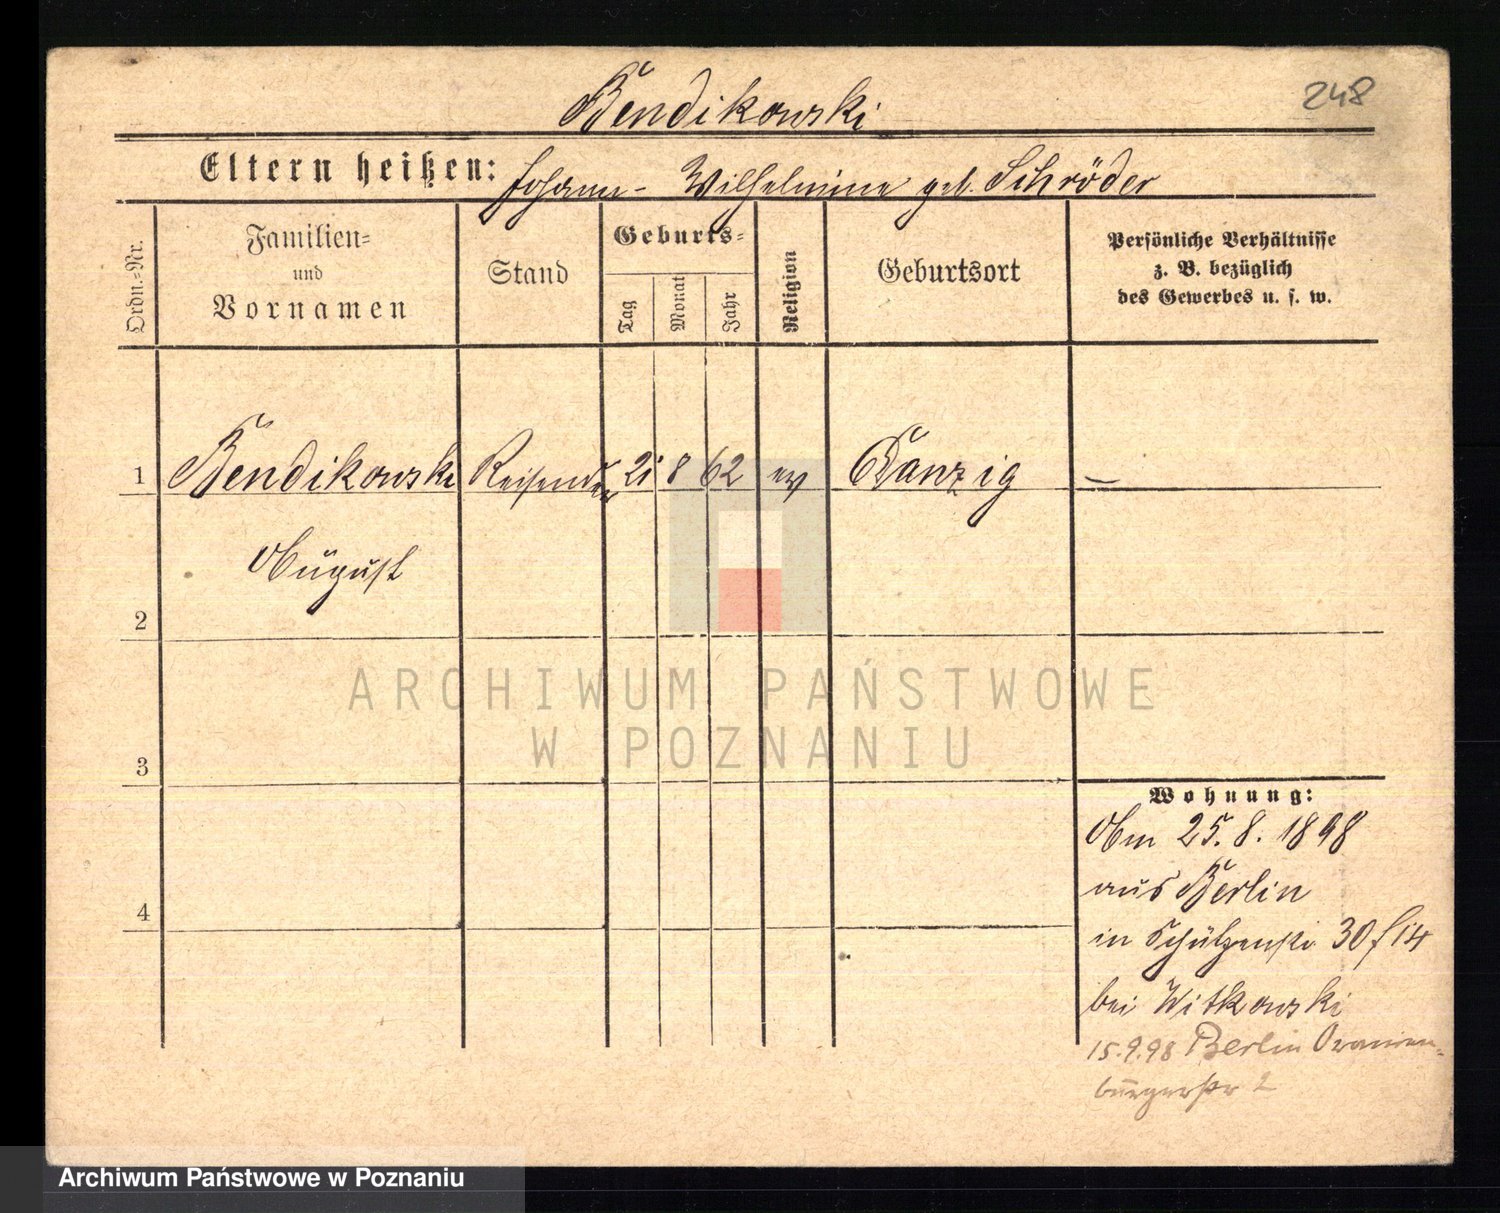 Bendikowski
248
Eltern heißen: Johann - Wilhelmine geb. Schröder
Ordn.=Nr.
Familien=
und
Vornamen
Stand
Geburts=
Tag
Monat
Jahr
Religion
Geburtsort
Persönliche Verhältnisse
z. B. bezüglich
des Gewerbes u. s. w.
1 Bendikowski Reisender 21 8 62 ev Danzig —
August
2
3
4
Wohnung:
Am 25.8.1898
aus Berlin
in Schützenstr 30
bei Witkowski
15.9.98 Berlin Oranien-
burgerstr 2
ARCHIWUM PAŃSTWOWE
W POZNANIU
Archiwum Państwowe w Poznaniu